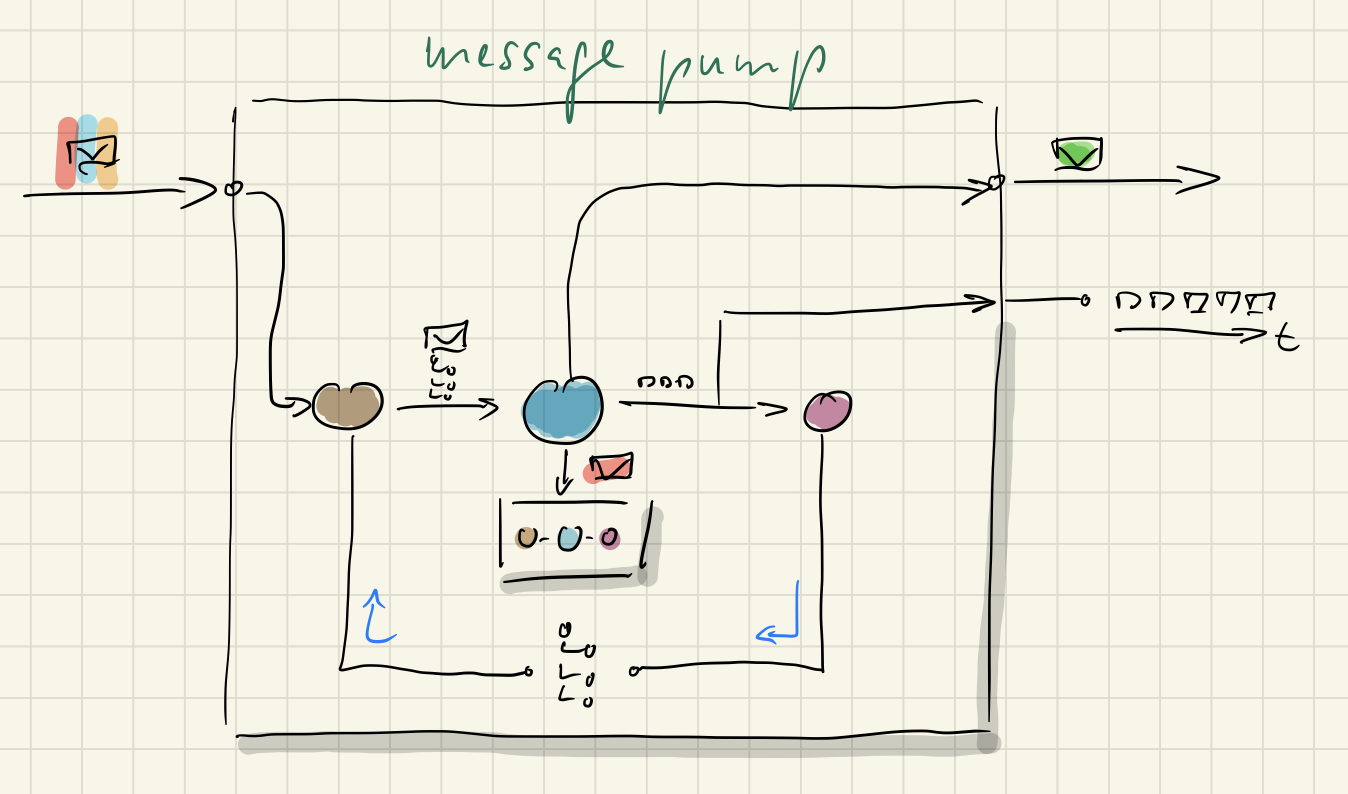 message pump
t